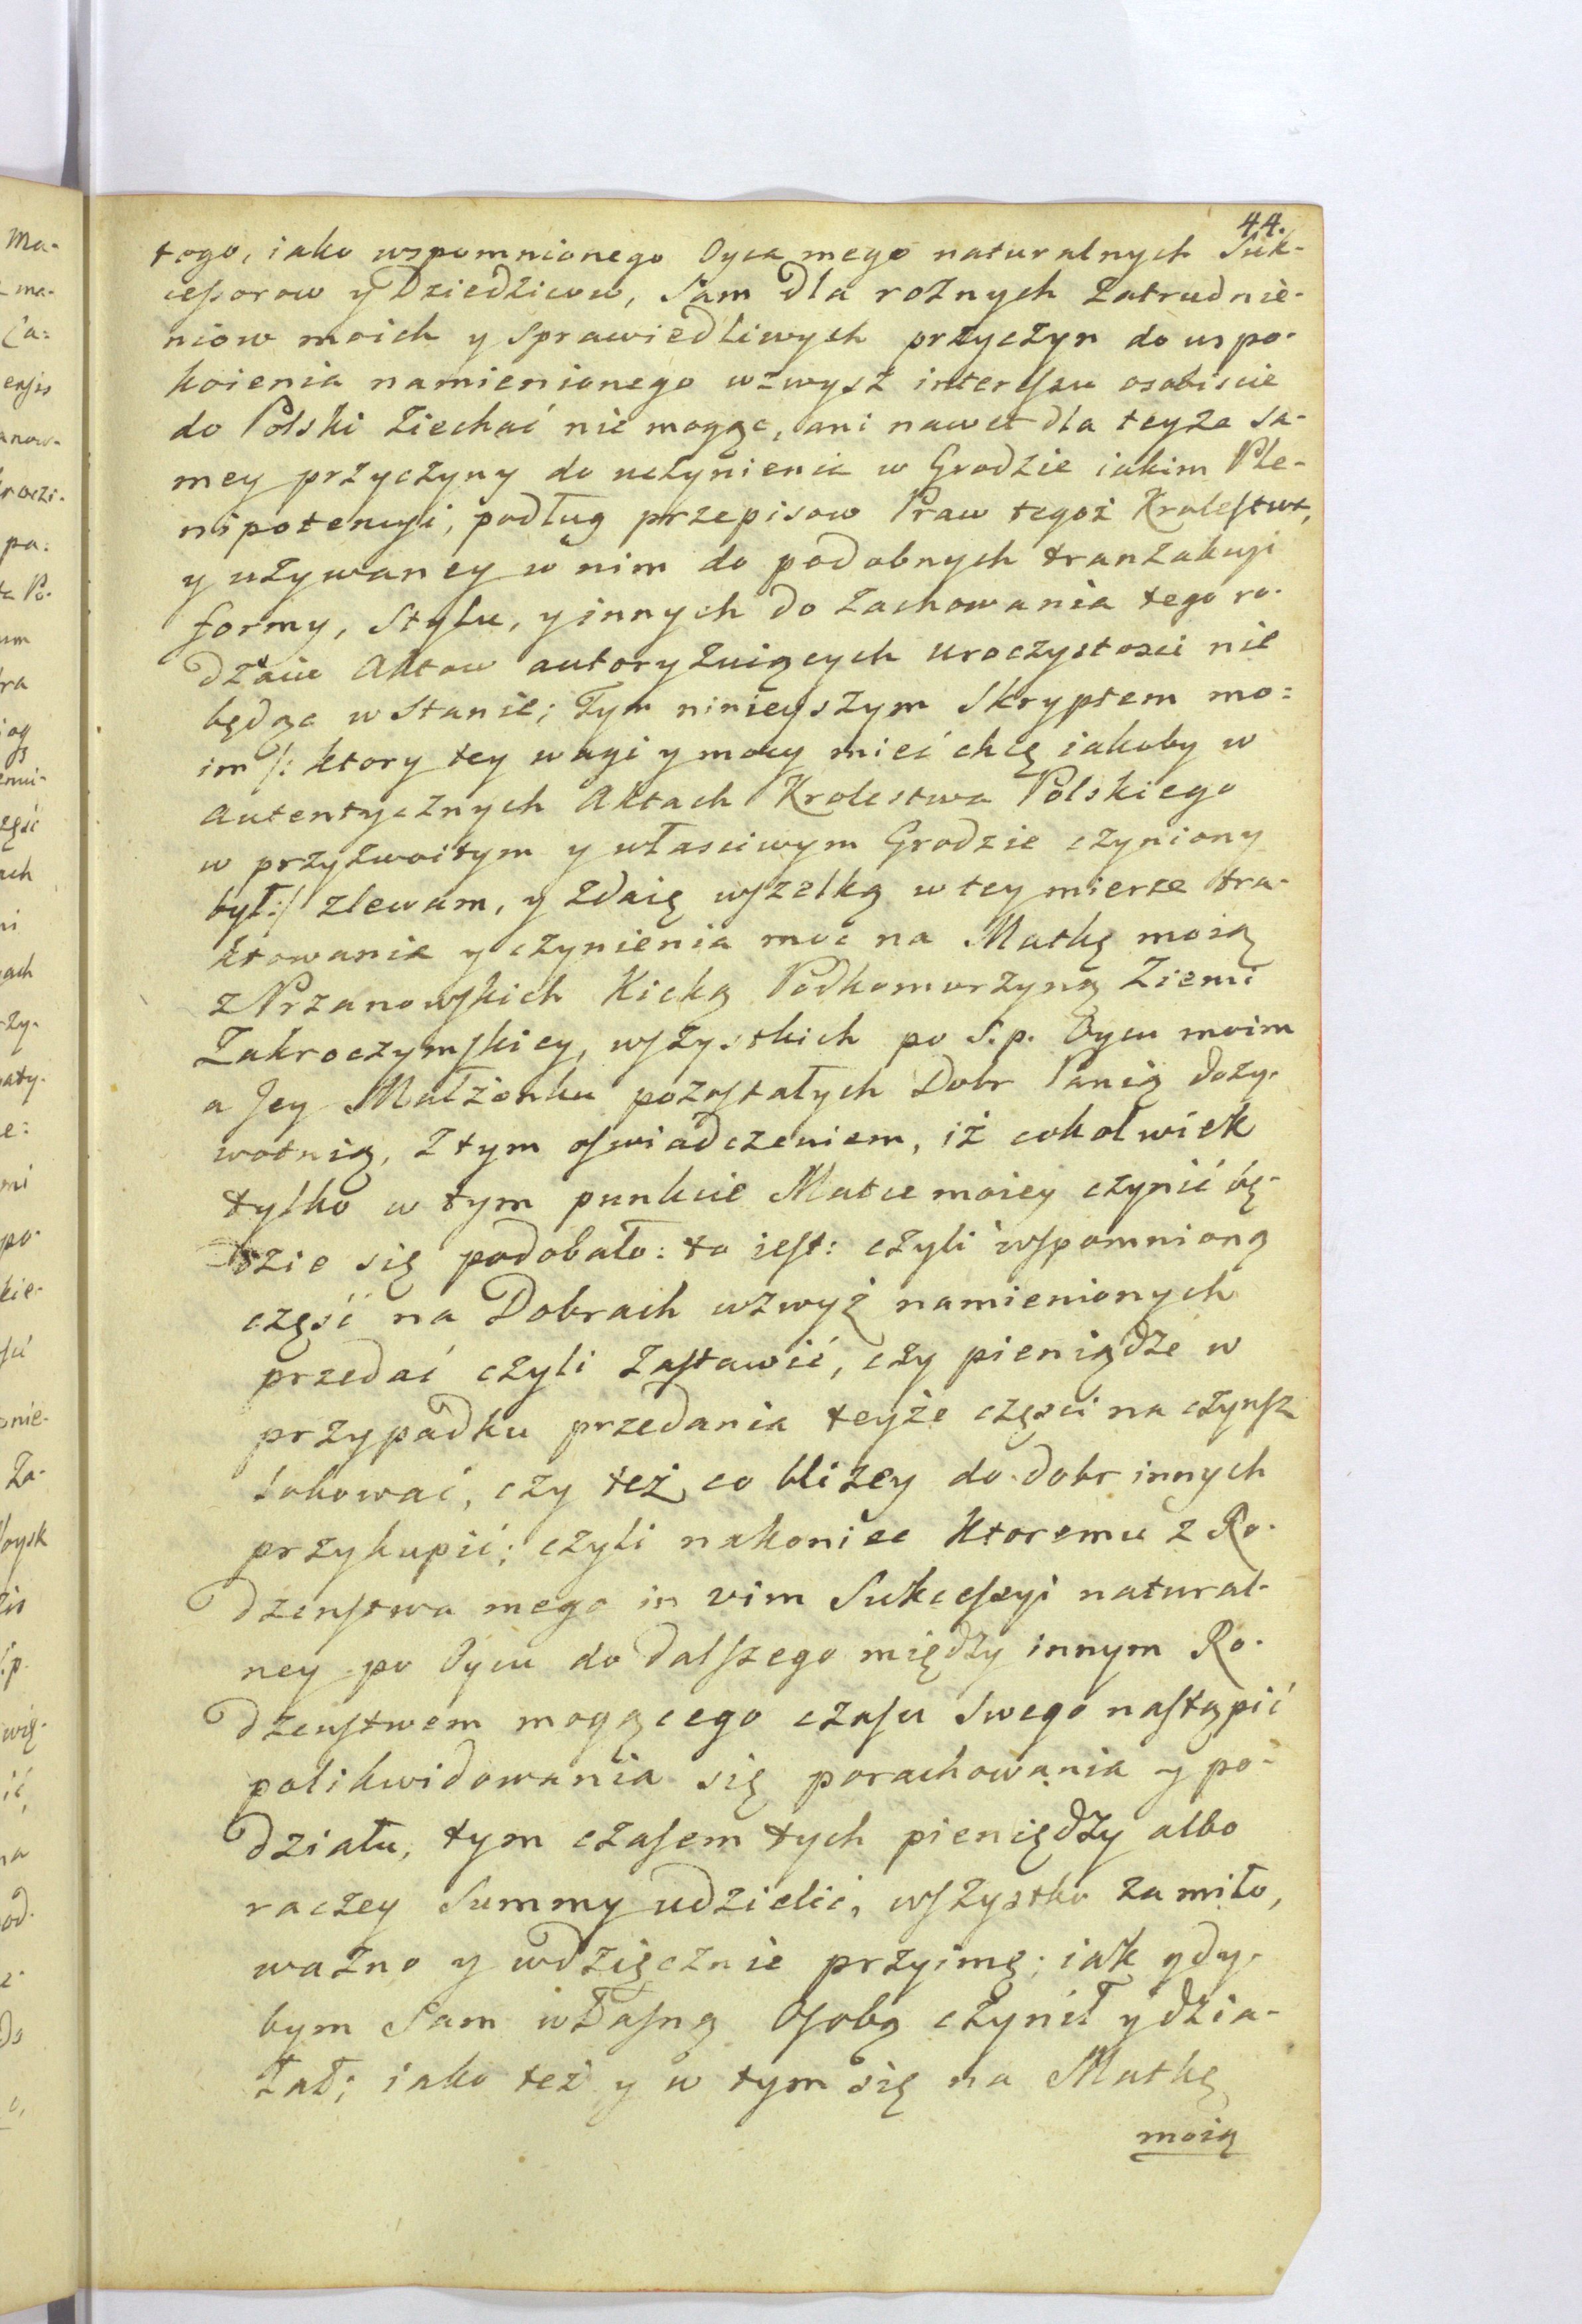 44.
togo, iako wspomnionego Oyca mego naturalnych Suk-
ceſsorow y Dziedzicow, Sam dla rożnych zatrudnie-
niow moich y sprawiedliwych przyczyn do uspo-
koienia namienionego wzwysz intereſsu osobiscie
do Polski ziechać nie mogąc, ani nawet dla teyże sa-
mey przyczyny do uczynienia w Grodzie iakim Ple-
nipotencyi, podług przepisow Praw tegoż Kroleſtwa,
y używaney w nim do podobnych tranzakcyi
formy, stylu, y innych do zachowania tego ro-
dzaiu Aktow autoryzuiących uroczystosci nie
będąc w stanie; Tym ninieyszym Skryptem mo=
im /: ktory tey wagi y mocy mieć chcę iakoby w
Autentycznych Aktach Krolestwa Polskiego
w przyzwoitym y własciwym Grodzie czyniony
był:/ zlewam, y zdaię wſzelką w tey mierze tra-
ktowania y czynienia moc na Matkę moią
z Przanowſkich Kicką Podkomorzyną Ziemi
Zakroczymſkiey, wſzystkich po S.p. Oycu moim
a Jey Małżonku pozoſtałych Dobr Panią doży-
wotnią, z tym oſwiadczeniem, iż cokolwiek
tylko w tym punkcie Matce moiey czynić bę-
dzie się podobało: to ieſt: czyli wſpomnioną
część na Dobrach wzwyż namienionych
przedać czyli zaſtawić, czy pieniądze w
przypadku przedania teyże częsci na czynſz
lokować, czy też co bliżey do dobr innych
przykupić; czyli nakoniec ktoremu z Ro-
dzenſtwa mego in vim Sukceſsyi natural-
ney po Oycu do dalſzego między innym Ro-
dzenſtwem mogącego czaſu swego naſtąpić
polikwidowania się porachowania y po-
działu, tym czaſem tych pieniędzy albo
raczey Summy udzielić, wſzystko za miło,
ważno y wdzięcznie przyimę; iak gdy-
bym Sam właſną Oſobą czynił y dzia-
łał; iako też y w tym się na Matkę
moią